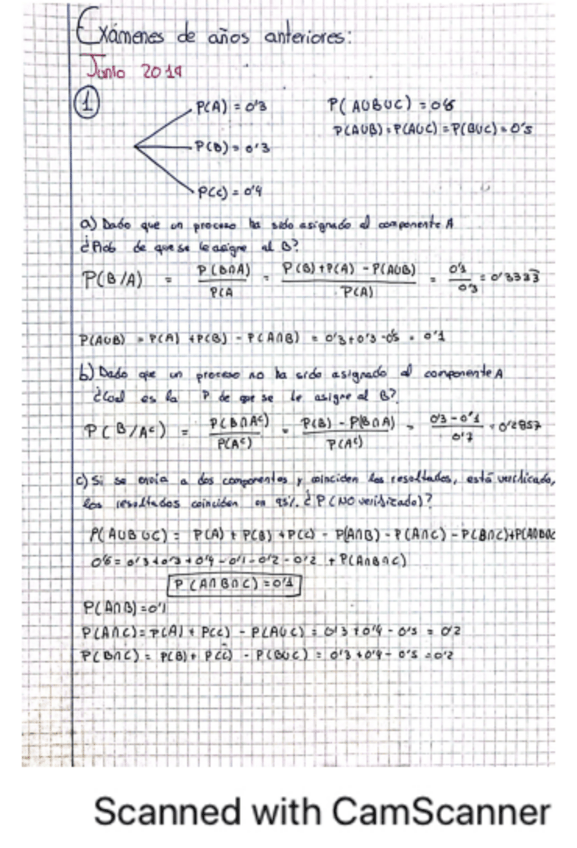 Exámenes de años anteriores:
Junio 2019
1
P(A) = 0'3
P(AUBUC) = 0'6
P(AUB) = P(AUC) = P(BUC) = 0'5
P(B) = 0'3
P(C) = 0'4
a) Dado que un proceso ha sido asignado al componente A
¿Prob de que se le asigne al B?
P(B/A) = P(B∩A) / P(A = P(B)+P(A) - P(AUB) / P(A) = 0'1 / 0'3 = 0'3333
P(AUB) = P(A) + P(B) - P(A∩B) = 0'3+0'3-0'5 = 0'1
b) Dado que un proceso no ha sido asignado al componente A
¿Cual es la P de que se le asigne al B?
P(B/Aᶜ) = P(B∩Aᶜ) / P(Aᶜ) = P(B) - P(B∩A) / P(Aᶜ) = 0'3-0'1 / 0'7 = 0'2857
c) Si se envia a dos componentes y coinciden los resultados, está verificado,
los resultados coinciden en 95%. ¿P(NO verificado)?
P(AUBUC) = P(A) + P(B) + P(C) - P(A∩B) - P(A∩C) - P(B∩C)+P(A∩B∩C
0'6 = 0'3+0'3+0'4-0'1-0'2-0'2 + P(A∩B∩C)
P(A∩B∩C) = 0'1
P(A∩B) = 0'1
P(A∩C) = P(A) + P(C) - P(AUC) = 0'3+0'4-0'5 = 0'2
P(B∩C) = P(B) + P(C) - P(BUC) = 0'3+0'4-0'5 = 0'2
Scanned with CamScanner